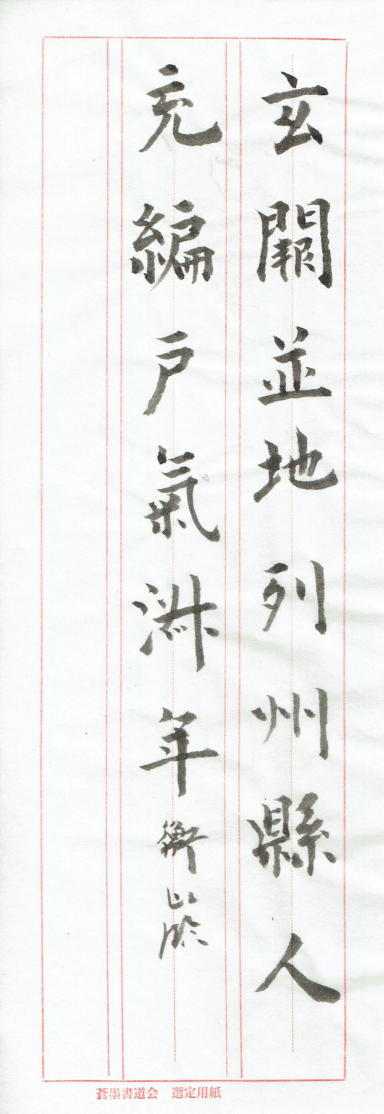 玄闕並地列州縣人
充編戶氣淑年 衡山臨
蒼墨書道会 選定用紙